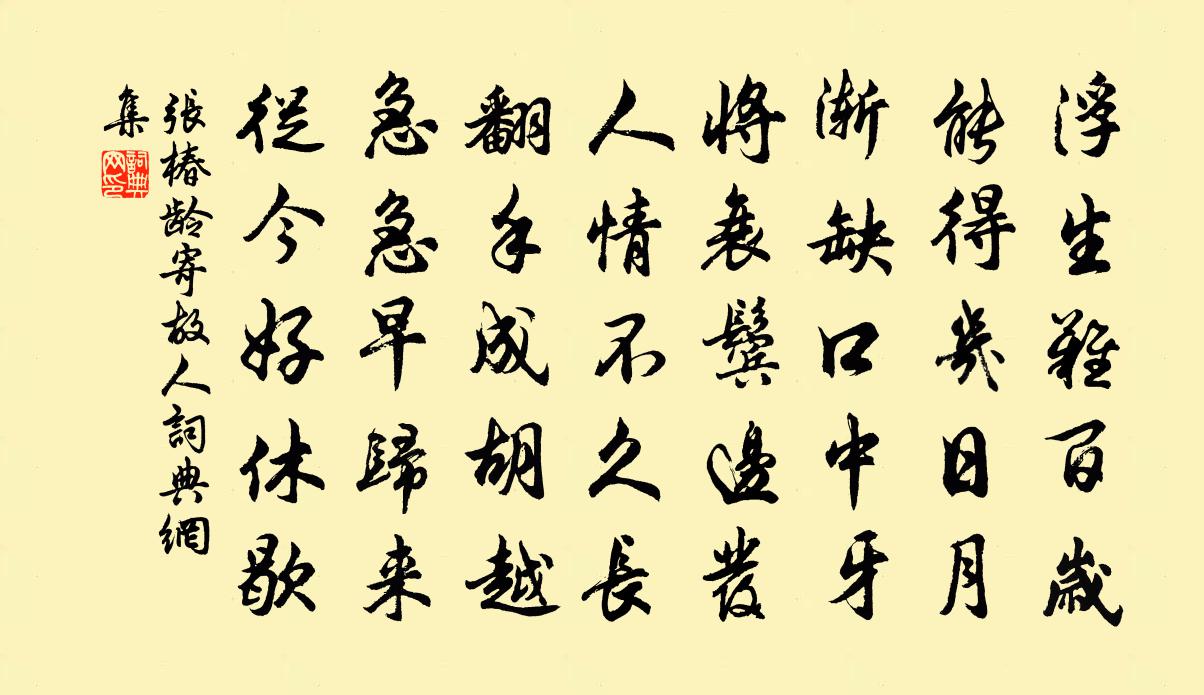 浮生難百歲
能得幾日月
漸缺口中牙
將衰鬢邊發
人情不久長
翻手成胡越
急急早歸来
從今好休歇
張椿龄寄故人詞典網
集
詞典网印